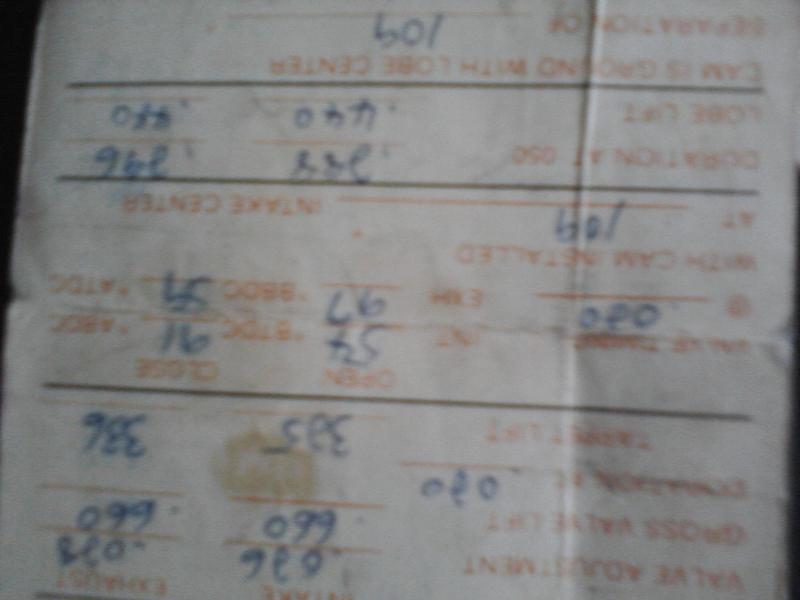 INTAKE EXHAUST
VALVE ADJUSTMENT .026 .028
GROSS VALVE LIFT .660 .660
DURATION AT .020
TAPPET LIFT 325 336
OPEN CLOSE
VALVE TIMING INT 54 °BTDC 91 °ABDC
@ .020 EXH 97 °BBDC 59 °ATDC
WITH CAM INSTALLED
AT 109 INTAKE CENTER
DURATION AT 050 .296
LOBE LIFT .440 .440
CAM IS GROUND WITH LOBE CENTER
SEPARATION OF 109 °